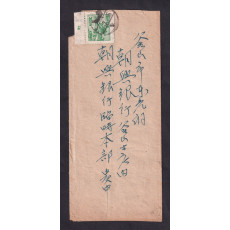 釜山市東光洞
朝興銀行釜山支店內
朝興銀行臨時本部 貴中